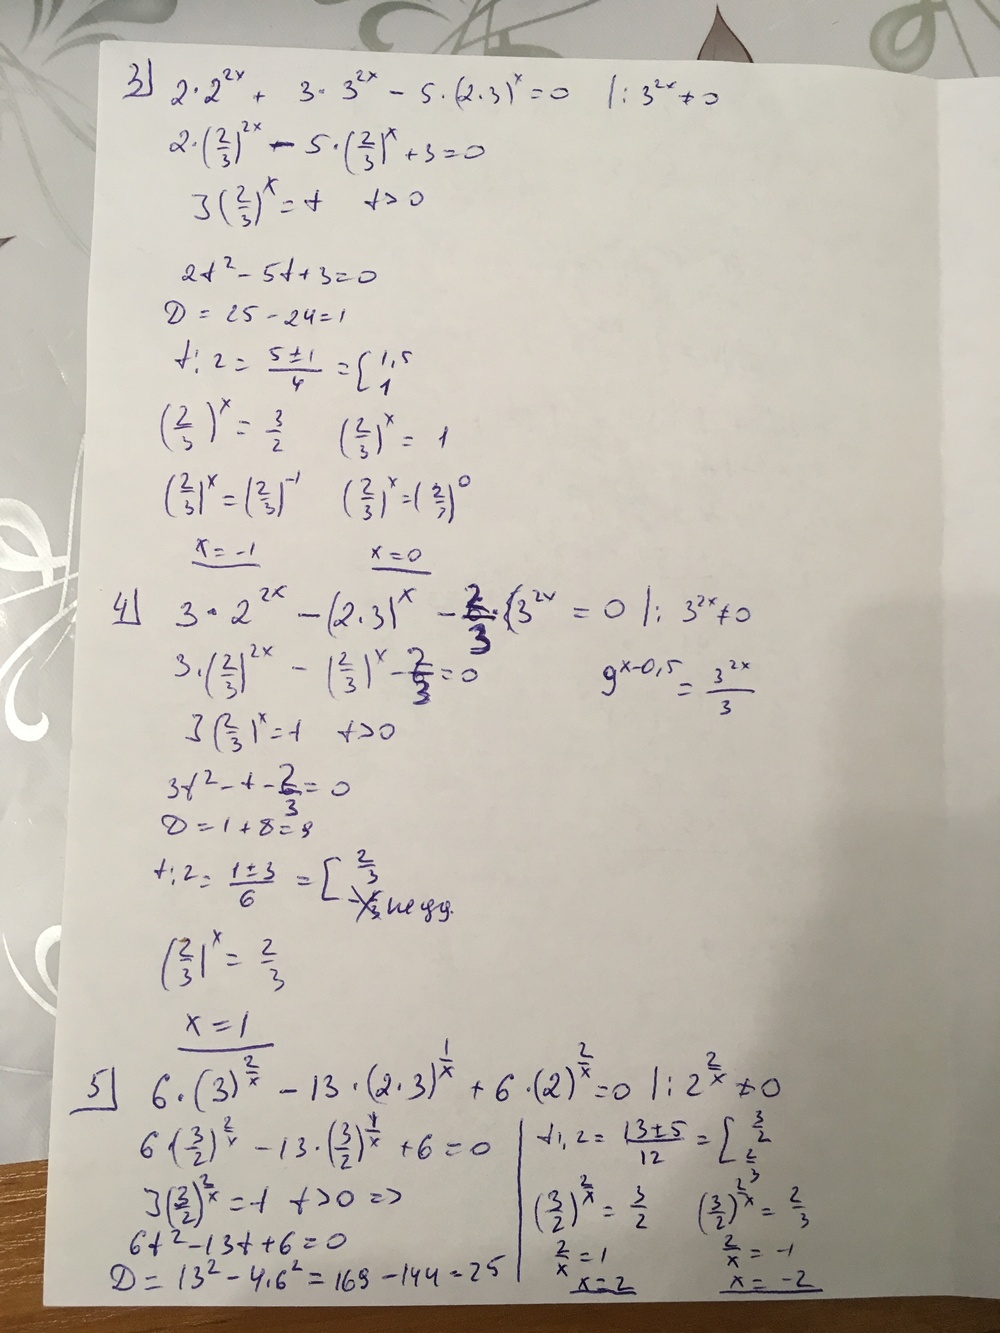 3) 2·2^{2x} + 3·3^{2x} - 5·(2·3)^x = 0 |: 3^{2x} ≠ 0
2·(2/3)^{2x} - 5·(2/3)^x + 3 = 0
З (2/3)^x = t t > 0
2t² - 5t + 3 = 0
D = 25 - 24 = 1
t₁,₂ = (5±1)/4 = [1,5 1
(2/3)^x = 3/2 (2/3)^x = 1
(2/3)^x = (2/3)^{-1} (2/3)^x = (2/3)^0
x = -1 x = 0
4) 3·2^{2x} - (2·3)^x - 2/3·(3^{2x} = 0 |: 3^{2x} ≠ 0
3·(2/3)^{2x} - (2/3)^x - 2/3 = 0 9^{x-0,5} = 3^{2x}/3
З (2/3)^x = t t > 0
3t² - t - 2/3 = 0
D = 1 + 8 = 9
t₁,₂ = (1±3)/6 = [2/3 не уд.
(2/3)^x = 2/3
x = 1
5) 6·(3)^{2/x} - 13·(2·3)^{1/x} + 6·(2)^{2/x} = 0 |: 2^{2/x} ≠ 0
6·(3/2)^{2/x} - 13·(3/2)^{1/x} + 6 = 0
З (3/2)^{2/x} = t t > 0 =>
6t² - 13t + 6 = 0
D = 13² - 4·6² = 169 - 144 = 25
t₁,₂ = (13±5)/12 = [3/2 2/3
(3/2)^{2/x} = 3/2 (3/2)^{2/x} = 2/3
2/x = 1 2/x = -1
x = 2 x = -2